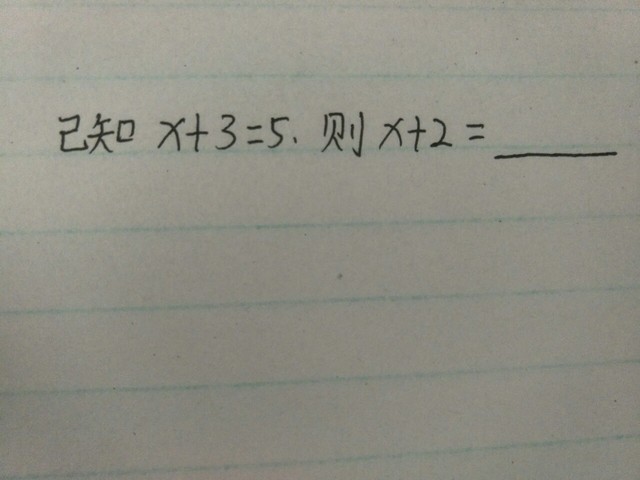 已知 x+3=5. 则 x+2=____